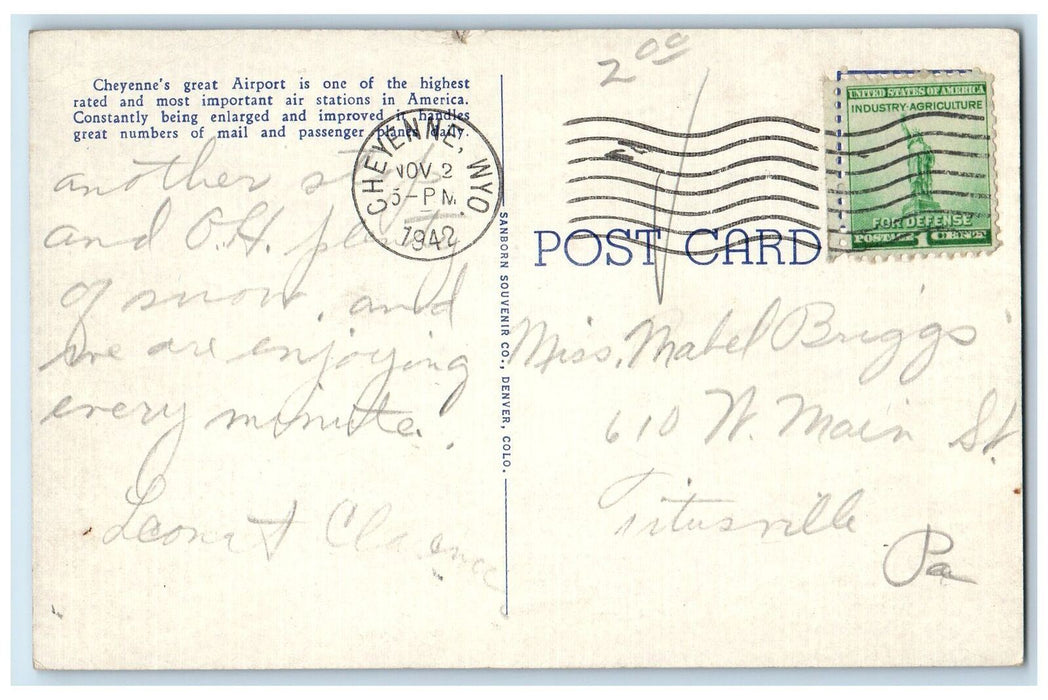 Cheyenne's great Airport is one of the highest
rated and most important air stations in America.
Constantly being enlarged and improved it handles
great numbers of mail and passenger planes daily.
another
and O.H.
of snow, and
we are enjoying
every minute.
Leona & Clarence
SANBORN SOUVENIR CO., DENVER, COLO.
CHEYENNE, WYO.
NOV 2
5-PM
1942
2.00
UNITED STATES OF AMERICA
INDUSTRY-AGRICULTURE
FOR DEFENSE
POSTAGE 1 CENT
POST CARD
Miss. Mabel Briggs
610 W. Main St.
Titusville
Pa